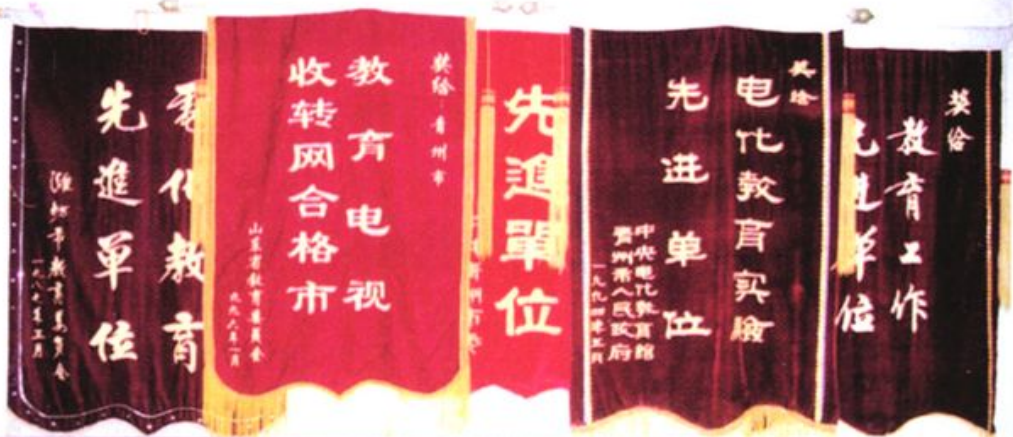 電化教育
先進單位
潍坊市教育委員会
一九八七年五月
奖给:青州市
教育电视
收转网合格市
山东省教育委員会
九九六年一月
先進單位
奖给
电化教育实验
先进单位
中央电化教育館
青州市人民政府
一九九四年五月
奖给
教育工作
先进单位